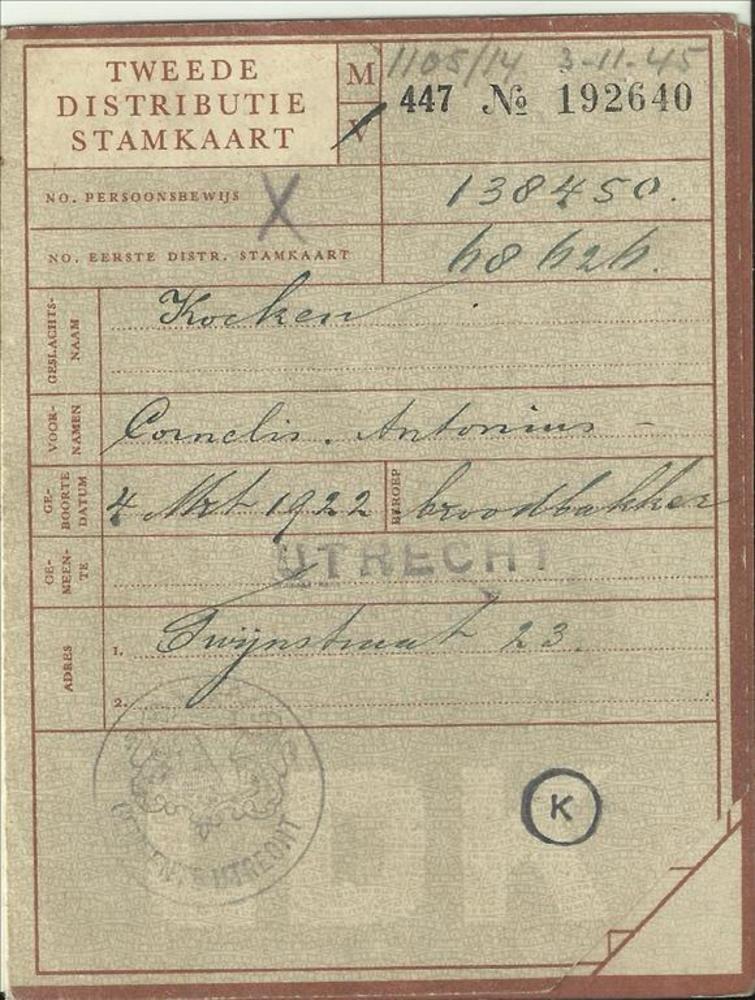 TWEEDE
DISTRIBUTIE
STAMKAART
M
V
1105/14 3-11-45
447 № 192640
NO. PERSOONSBEWIJS
X
138450.
NO. EERSTE DISTR. STAMKAART
68626.
GESLACHTS-
NAAM
Kocken
VOOR-
NAMEN
Cornelis. Antonius -
GE-
BOORTE
DATUM
4 Mrt 1922
BEROEP
broodbakker
GE-
MEEN-
TE
UTRECHT
ADRES
1. Twijnstraat 23.
2.
GEMEENTE UTRECHT
K